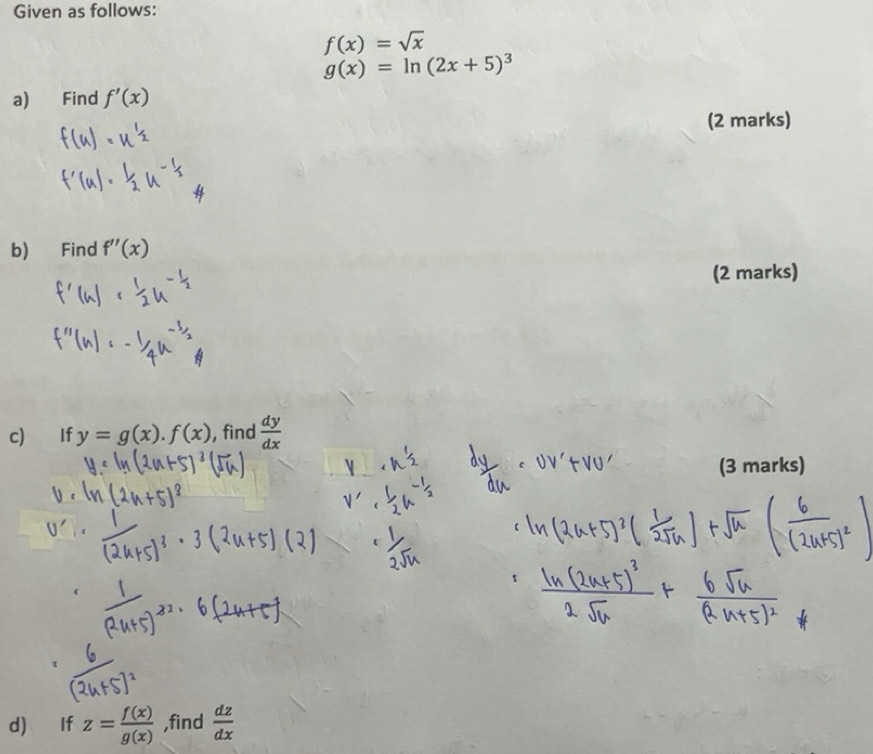 Given as follows:
f(x) = √x
g(x) = ln (2x + 5)³
a) Find f′(x)
(2 marks)
f(x) = x^½
f′(x) = ½ x^-½ #
b) Find f″(x)
(2 marks)
f′(x) = ½ x^-½
f″(x) = -¼ x^-3/2 #
c) If y = g(x). f(x), find dy/dx
(3 marks)
y = ln (2x+5)³ (√x)
U = ln (2x+5)³
U′ = 1/(2x+5)³ · 3 (2x+5) (2)
= 1/(2x+5)^32 · 6 (2x+5)
= 6/(2x+5)²
V = x^½
V′ = ½ x^-½
= 1/2√x
dy/dx = UV′ + VU′
= ln (2x+5)³ (1/2√x) + √x (6/(2x+5)²)
= ln (2x+5)³/2√x + 6√x/(2x+5)² #
d) If z = f(x)/g(x) ,find dz/dx